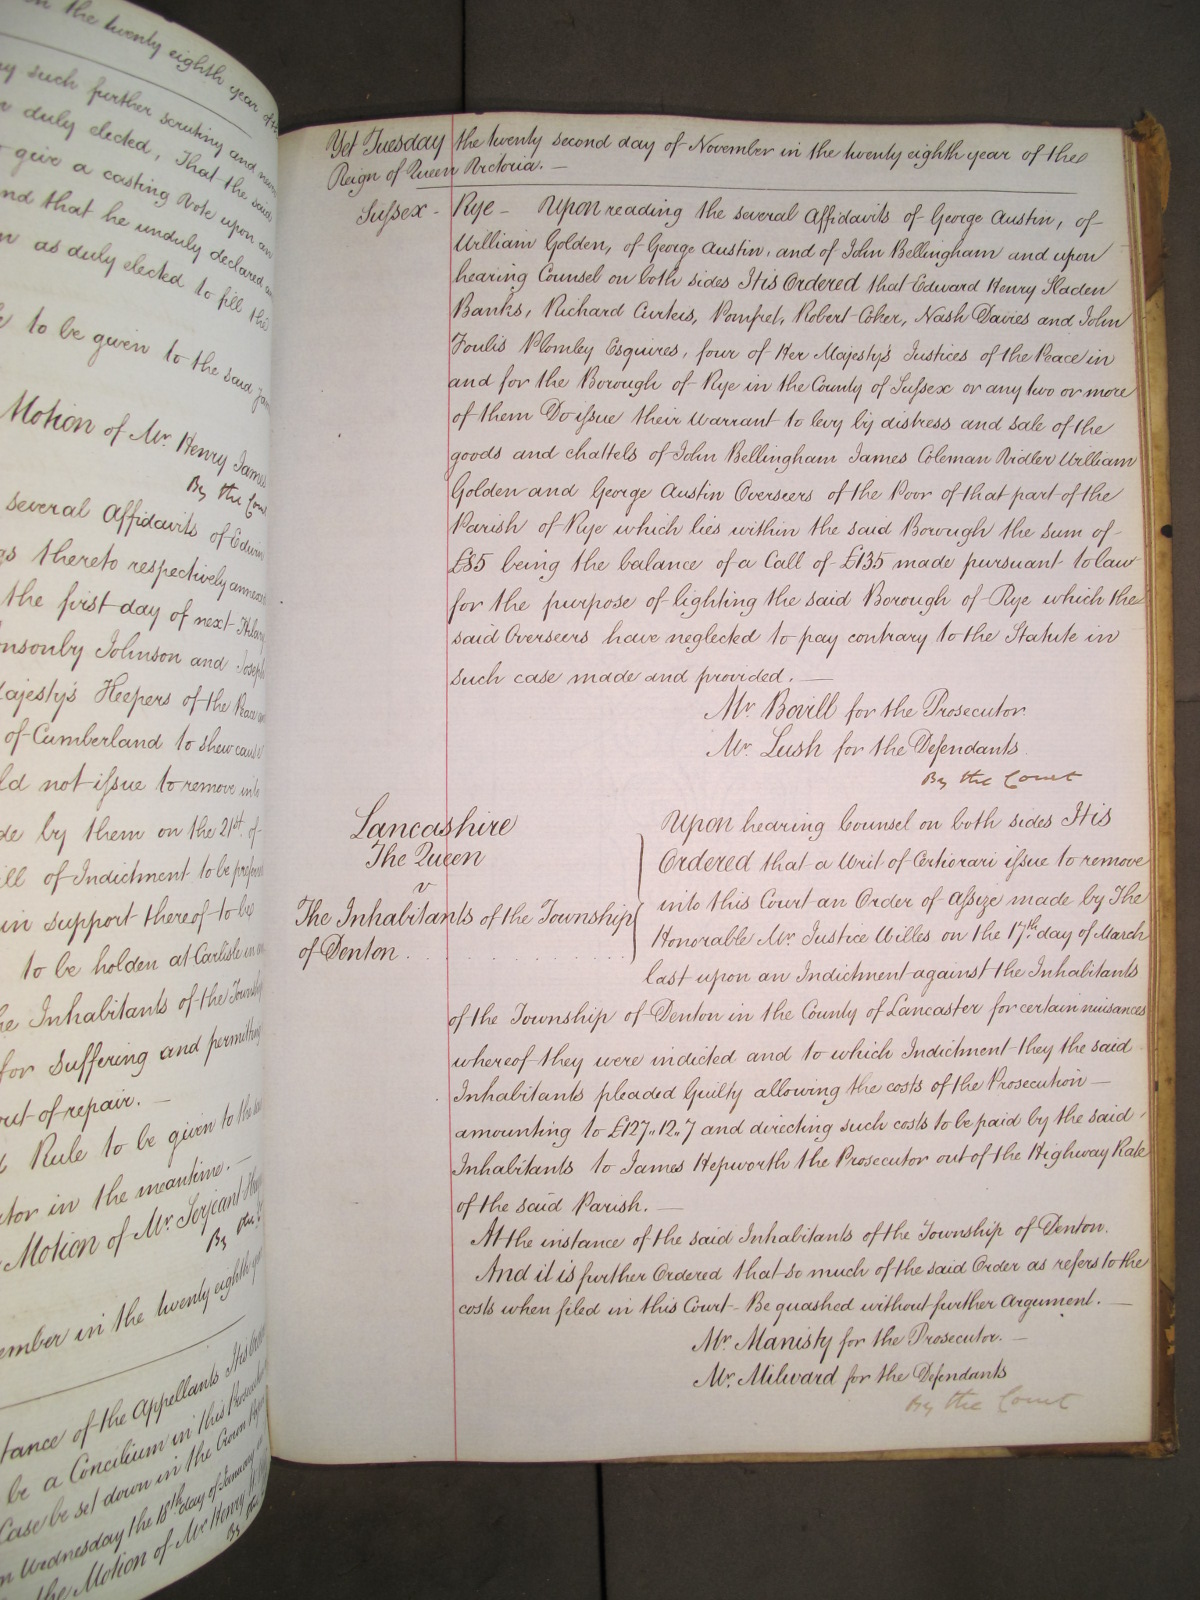 in the twenty eighth year of the
such further scrutiny and
duly elected, That the said
give a casting Vote upon
and that he unduly declared
as duly elected to fill the
to be given to the said
Motion of Mr. Henry James
By the Court
several Affidavits of Edwin
thereto respectively annexed
the first day of next Hilary
Johnson and Joseph
Majesty's Keepers of the Peace
of Cumberland to shew cause
not issue to remove into
by them on the 21st. of
of Indictment to be preferred
in support thereof to be
to be holden at Carlisle in
Inhabitants of the Township
for suffering and permitting
out of repair. —
Rule to be given to the
in the meantime. —
Motion of Mr. Serjeant
By the
in the twenty eighth year
of the Appellants It is
be a Concilium in this Prosecution
Case be set down in the Crown Paper
Wednesday the 18th day of January
the Motion of Mr. Henry
By the
Yet Tuesday the twenty second day of November in the twenty eighth year of the
Reign of Queen Victoria. —
Sussex - Rye - Upon reading the several Affidavits of George Austin, of
William Golden, of George Austin, and of John Bellingham and upon
hearing Counsel on both sides It is Ordered that Edward Henry Sladen
Banks, Richard Curteis, Pomfret, Robert Coker, Nash Davies and John
Foulis Plomley Esquires, four of Her Majesty's Justices of the Peace in
and for the Borough of Rye in the County of Sussex or any two or more
of them Do issue their Warrant to levy by distress and sale of the
goods and chattels of John Bellingham James Coleman Vidler William
Golden and George Austin Overseers of the Poor of that part of the
Parish of Rye which lies within the said Borough the sum of
£85 being the balance of a Call of £135 made pursuant to law
for the purpose of lighting the said Borough of Rye which the
said Overseers have neglected to pay contrary to the Statute in
such case made and provided. —
Mr. Bovill for the Prosecutor.
Mr. Lush for the Defendants.
By the Court
Lancashire
The Queen
v
The Inhabitants of the Township
of Denton . . . . . . . . . . . .
Upon hearing Counsel on both sides It is
Ordered that a Writ of Certiorari issue to remove
into this Court an Order of Assize made by The
Honorable Mr. Justice Willes on the 17th. day of March
last upon an Indictment against the Inhabitants
of the Township of Denton in the County of Lancaster for certain nuisances
whereof they were indicted and to which Indictment they the said
Inhabitants pleaded Guilty allowing the costs of the Prosecution —
amounting to £127.,12.,7 and directing such costs to be paid by the said
Inhabitants to James Hepworth the Prosecutor out of the Highway Rate
of the said Parish. —
At the instance of the said Inhabitants of the Township of Denton.
And it is further Ordered that so much of the said Order as refers to the
costs when filed in this Court - Be quashed without further Argument. —
Mr. Manisty for the Prosecutor. —
Mr. Milward for the Defendants
By the Court